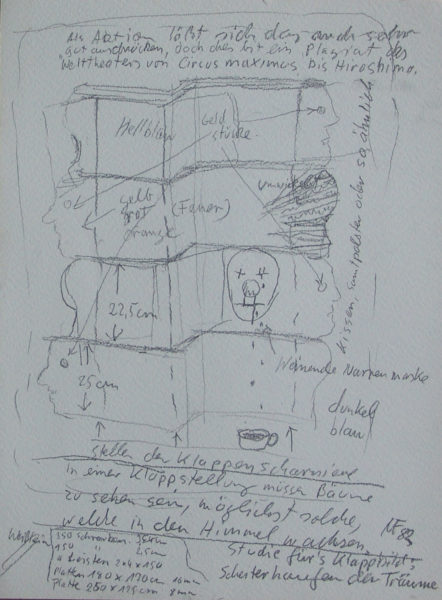 Als Aktion läßt sich das auch sehr
gut ausdrücken, doch dies ist ein Plagiat des
Welttheaters von Circus maximus bis Hiroshima.
Hellblau
Geld
stücke
gelb
rot
orange
(Feuer)
Kissen, Samtpolster oder so ähnlich
22,5cm
Weinende Narrenmaske
25cm
dunkel
blau
stellen der Klappenscharniere
in einer Klappstellung müssen Bäume
zu sehen sein, möglichst solche,
welche in den Himmel wachsen
Studie für's Klappbild:
Scheiterhaufen der Träume
350 Schrauben
150 "
Leisten 2x4x150
Platten 180x170cm 10mm
Platte 250x125cm 8mm